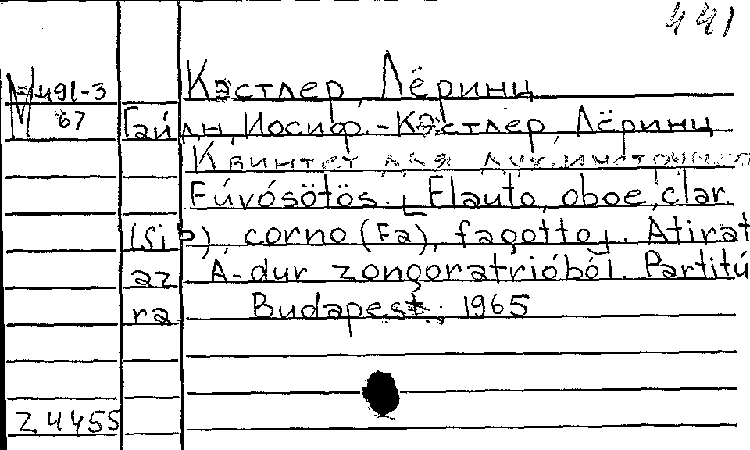 441
Кэстлер, Лёринц
М 491-3
67
Гайдн, Иосиф.-Кэстлер, Лёринц
Квинтет для дух. инструмен
Fúvósötös. [Flauto, oboe, clar.
(Si b), corno (Fa), fagotto]. Átirat
az A-dur zongoratrióból. Partitú
ra Budapest, 1965
Z.4455